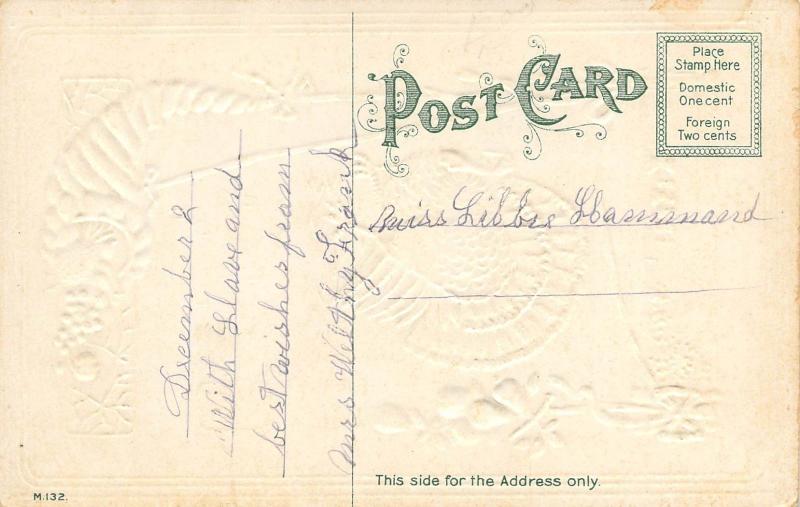 POST CARD
Place
Stamp Here
Domestic
One cent
Foreign
Two cents
December 2
With Love and
best wishes from
Mrs Welthy Frank
Miss Libbie Hammand
This side for the Address only.
M.132.